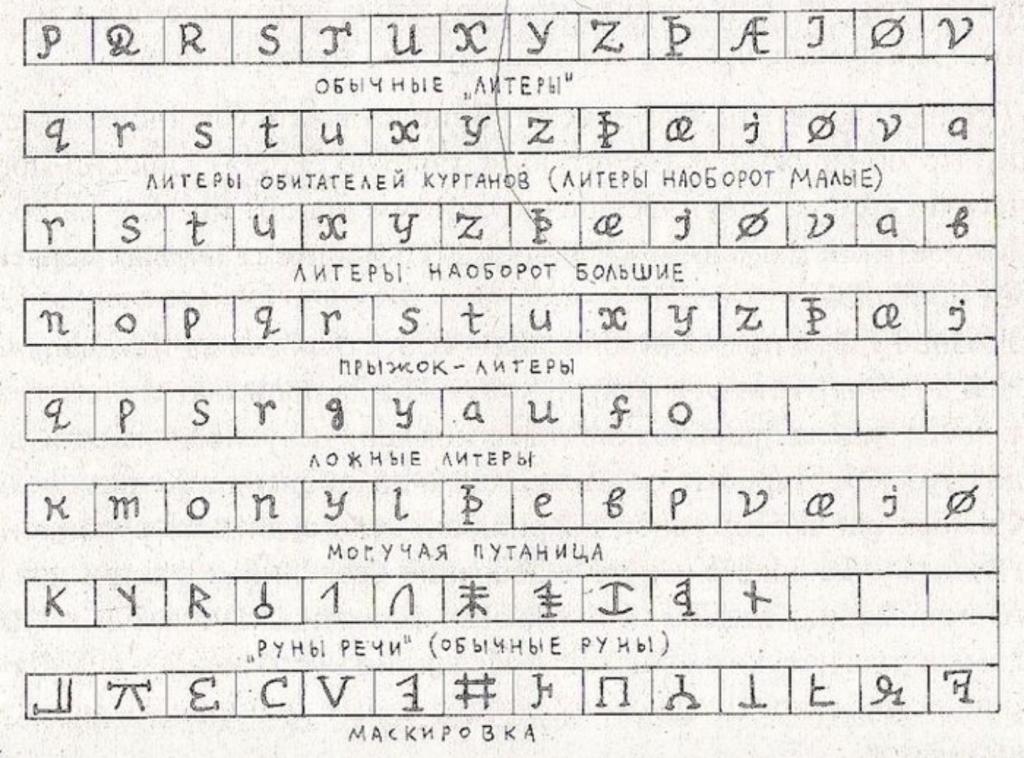 P Q R S T U X Y Z Þ Æ J Ø V
ОБЫЧНЫЕ „ЛИТЕРЫ"
q r s t u x y z Þ æ j ø v a
ЛИТЕРЫ ОБИТАТЕЛЕЙ КУРГАНОВ (ЛИТЕРЫ НАОБОРОТ МАЛЫЕ)
r s t u x y z Þ æ j ø v a в
ЛИТЕРЫ НАОБОРОТ БОЛЬШИЕ
n o p q r s t u x y z Þ æ j
ПРЫЖОК-ЛИТЕРЫ
q p s r g y a u f o
ЛОЖНЫЕ ЛИТЕРЫ
к m o n y l Þ e в p v æ j ø
МОГУЧАЯ ПУТАНИЦА
„РУНЫ РЕЧИ" (ОБЫЧНЫЕ РУНЫ)
МАСКИРОВКА